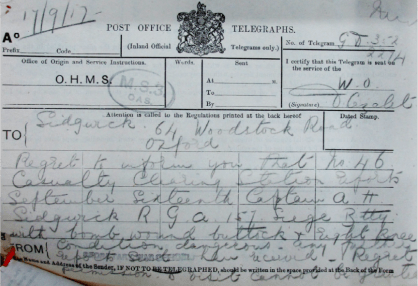 17/9/17
POST OFFICE TELEGRAPHS.
A°
Prefix Code
(Inland Official Telegrams only.)
No. of Telegram
Office of Origin and Service Instructions.
Words
Sent
I certify that this Telegram is sent on the service of the
O.H.M.S.
M.S.3
CAS.
At
To
By
W.O.
(Signature)
Attention is called to the Regulations printed at the back hereof
Dated Stamp.
TO Sidgwick 64 Woodstock Road
Oxford
Regret to inform you that No. 46
Casualty Clearing Station reports
September Sixteenth Captain A H
Sidgwick R G A 157 Siege Btty
with bomb wound buttock & right knee
FROM Condition dangerous any further
report sent when received. Regret
permission to visit cannot be granted
Name and Address of the Sender, IF NOT TO BE TELEGRAPHED, should be written in the space provided at the Back of the Form